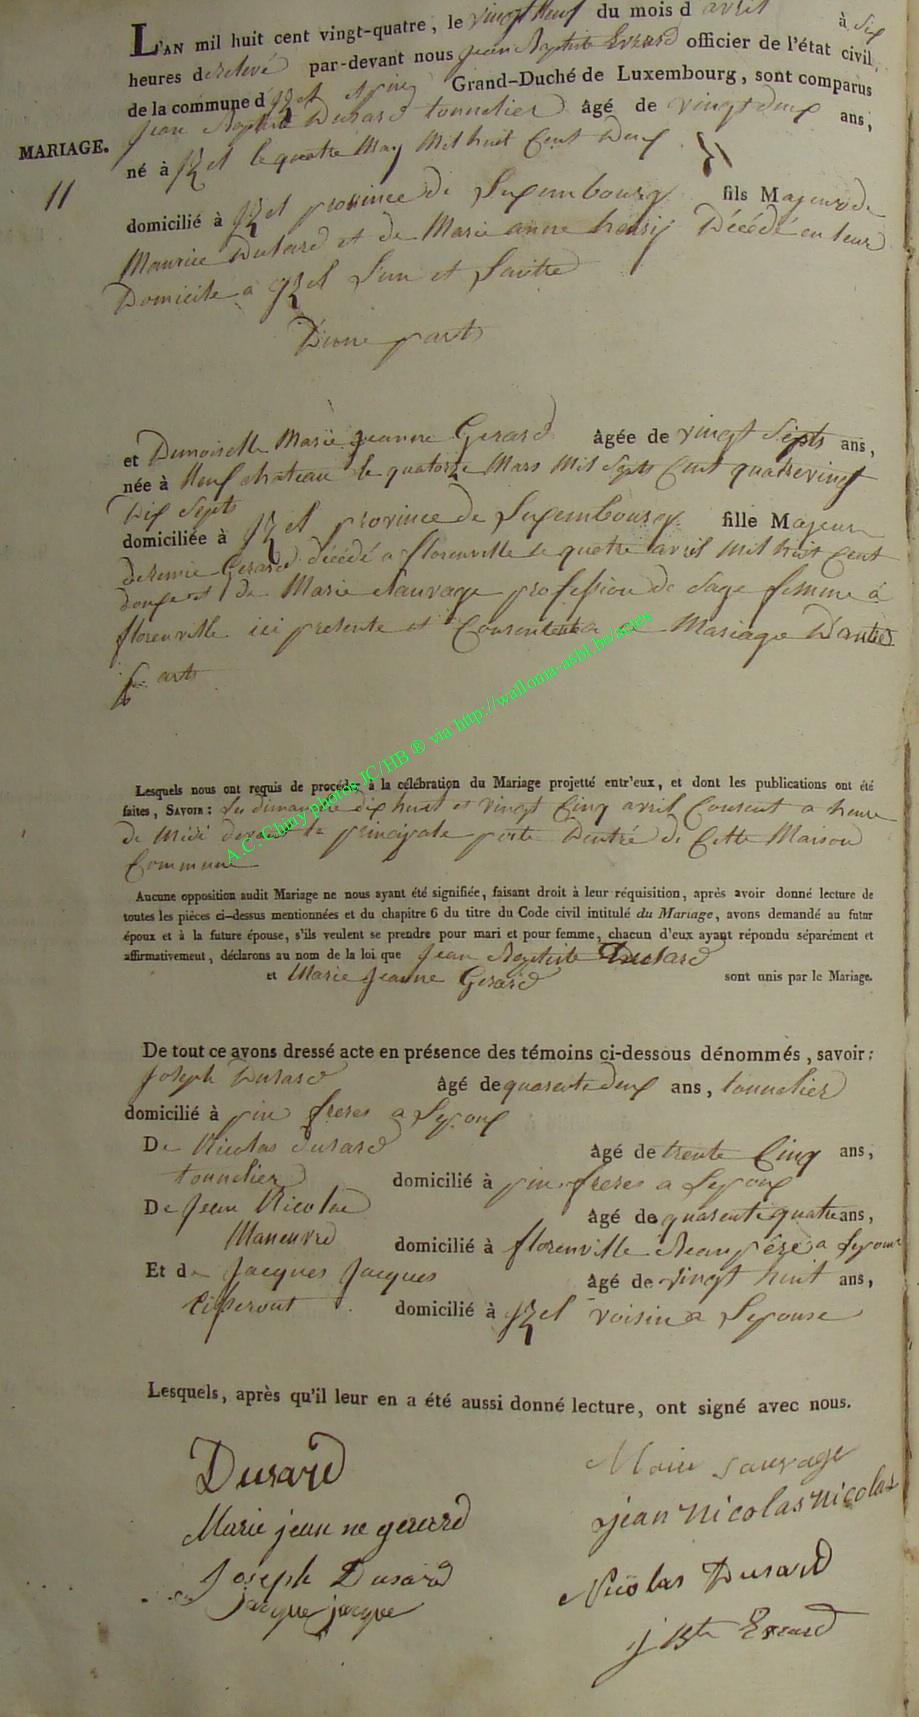 L'AN mil huit cent vingt-quatre, le vingt neuf du mois d avril à six
heures de relevé par-devant nous jean Baptiste Evrard officier de l'état civil
de la commune d'jzel Grand-Duché de Luxembourg, sont comparus
jean Baptiste Dusard tonnelier âgé de vingt deux ans,
MARIAGE.
né à jzel le quatre May Mil huit Cent Deux
11
domicilié à jzel province de Luxembourg fils Majeur de
Maurice Dusard et de Marie anne henry Décédé en leur
Domicile a jzel Lun et Lautre
D'une parts
et Demoiselle Marie jeanne Gerard âgée de vingt Septs ans,
née à Neufchateau le quatorze Mars Mil Septs Cent quatrevingt
Dix Septs
domiciliée à jzel province de Luxembourg fille Majeur
de remie Gerard décédé a florenville le quatre avril Mil huit Cent
douze et de Marie Sauvage profession de Sage femme à
florenville ici presente et Consentente a ce Mariage D'autre
parts
Lesquels nous ont requis de procéder à la célébration du Mariage projetté entr'eux, et dont les publications ont été
faites, SAVOIR : Les dimanche dix huit et vingt Cinq avril Courent a heure
de Midi devant la principale porte Dentré de Cette Maison
Commune
Aucune opposition audit Mariage ne nous ayant été signifiée, faisant droit à leur réquisition, après avoir donné lecture de
toutes les pièces ci-dessus mentionnées et du chapitre 6 du titre du Code civil intitulé du Mariage, avons demandé au futur
époux et à la future épouse, s'ils veulent se prendre pour mari et pour femme, chacun d'eux ayant répondu séparément et
affirmativement, déclarons au nom de la loi que Jean Baptiste Dusard
et Marie Jeanne Gerard sont unis par le Mariage.
De tout ce avons dressé acte en présence des témoins ci-dessous dénommés, savoir :
Joseph Dusard âgé de quarente Deux ans, tonnelier
domicilié à pin freres a Lepoux
De Nicolas dusard âgé de trente Cinq ans,
tonnelier domicilié à pin freres a Lepoux
De Jean Nicolas âgé de quarente quatre ans,
Maneuvre domicilié à florenville Beau père a Lepouse
Et de Jacques Jacques âgé de vingt huit ans,
tisserant domicilié à jzel voisin a Lepouse
Lesquels, après qu'il leur en a été aussi donné lecture, ont signé avec nous.
Dusard
Marie Sauvage
Marie jean ne gerard
jean nicolas nicolas
Joseph Dusard
Nicolas Dusard
jacque jacque
j Bte Evrard
A.C. Chiny photos JC/HB ® via http://wallonia-asbl.be/actes